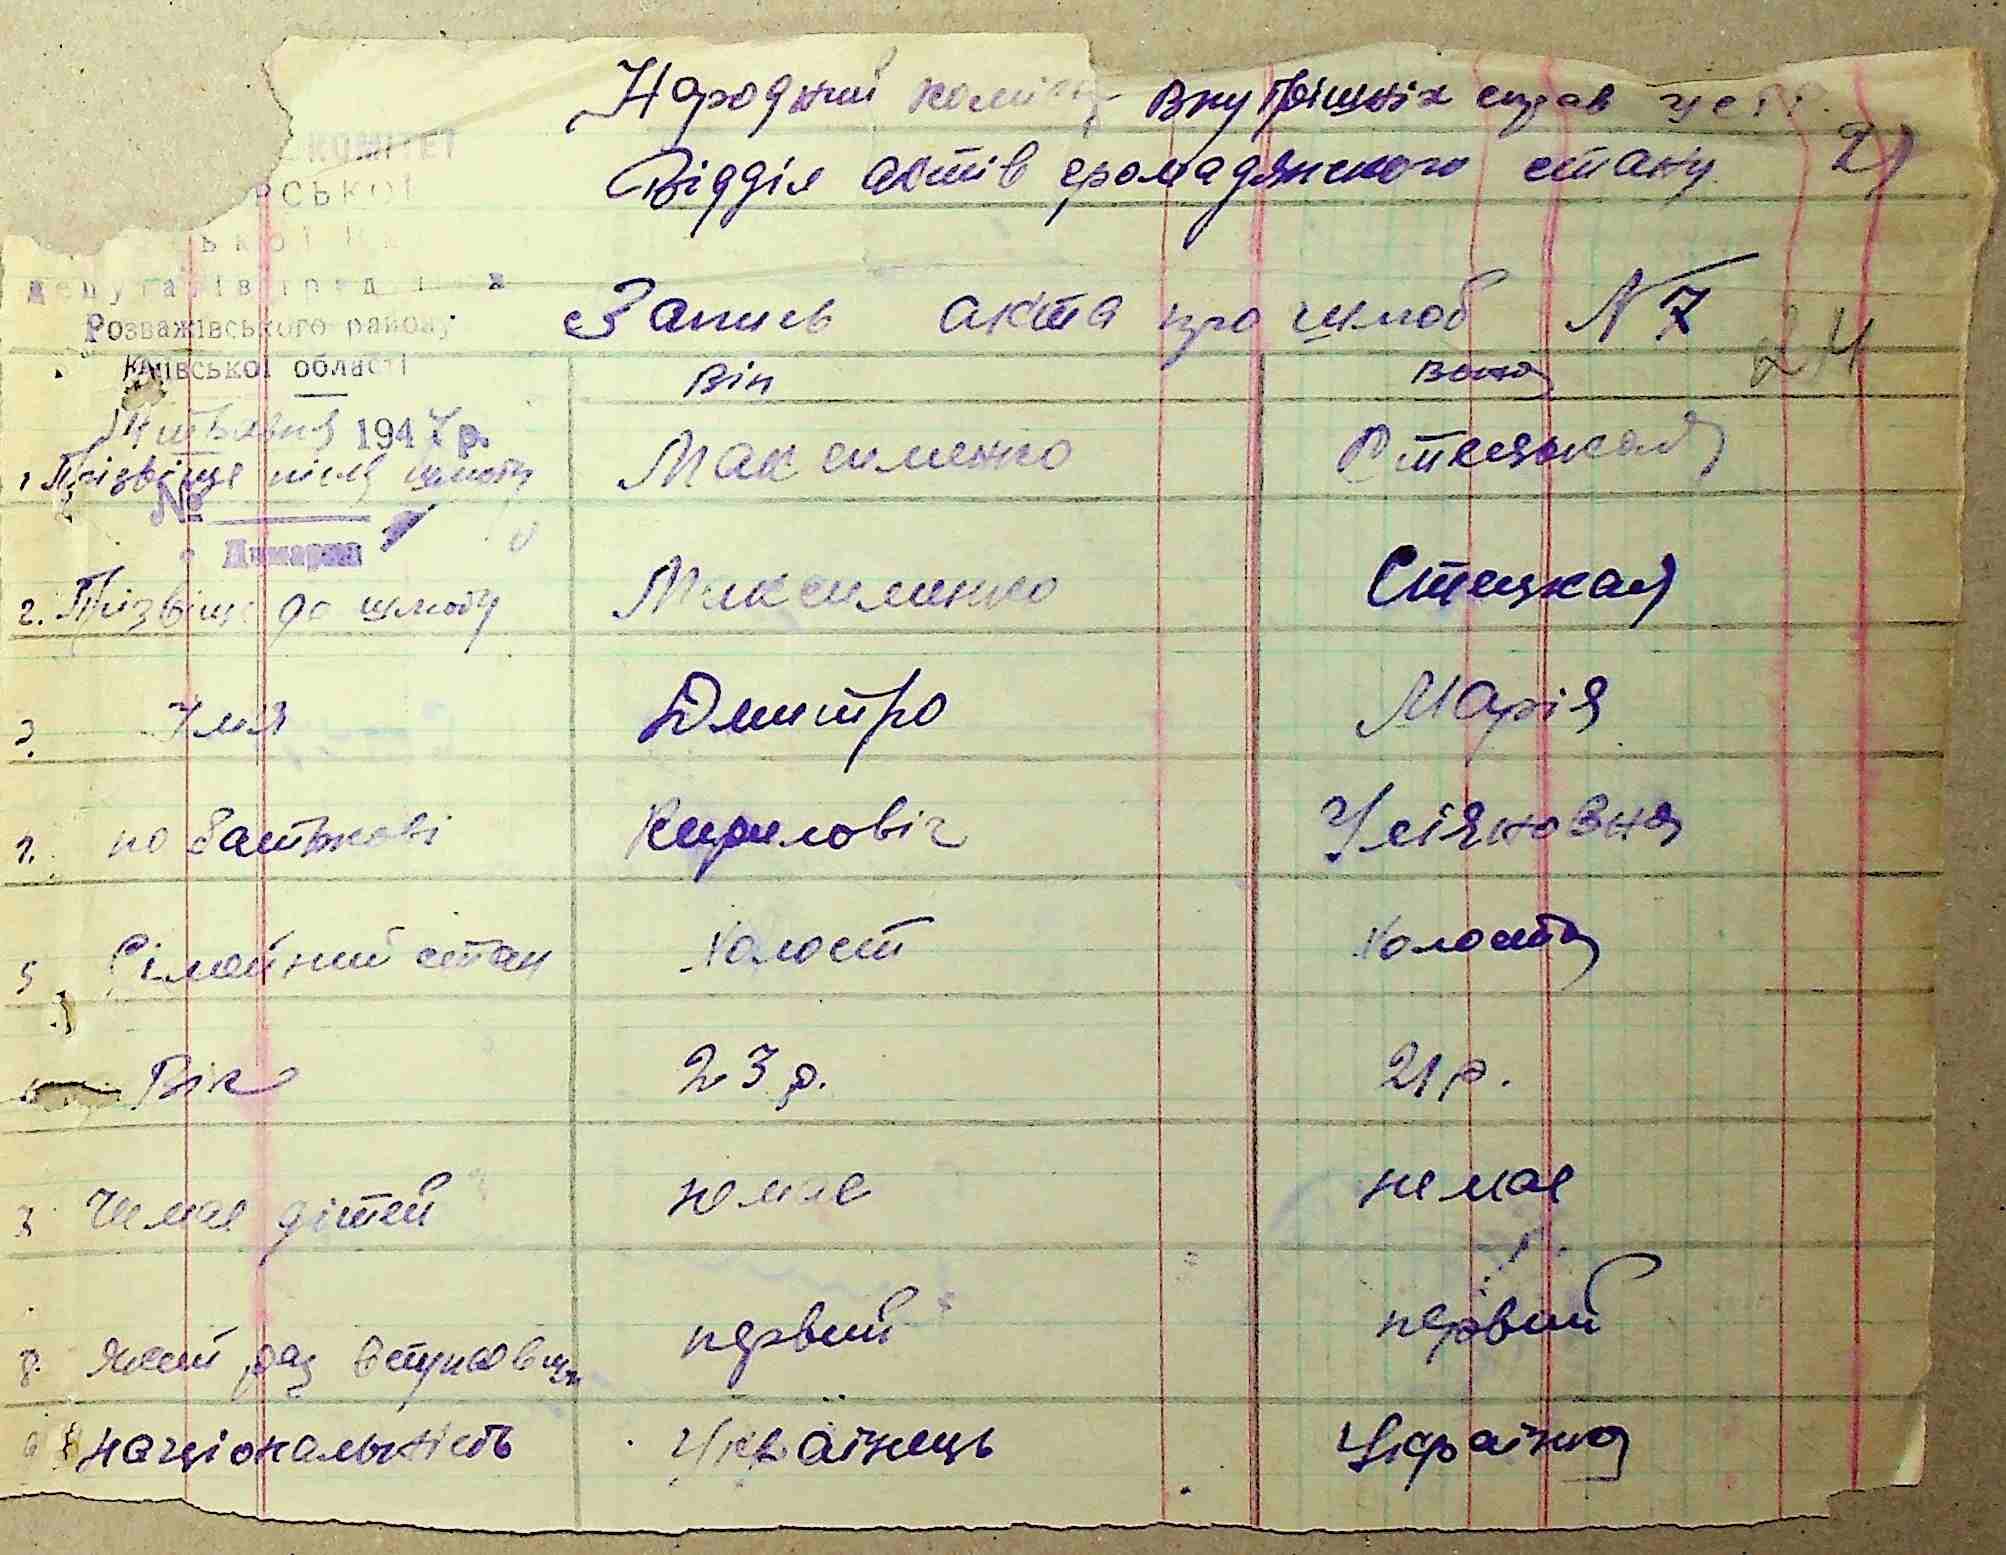 Народний коміс внутрішніх справ усрр.
Відділ актів громадянского стану 21
КОМІТЕТ
РСЬКОЇ
ЬКОЇ
депутатів трудящих
Розважівського району
Київської області
Запись акта про шлюб N 7
24
Він Вона
1947 р.
1 Прізвіще після шлюбу Максименко Стецькая
№
2. Прізвіще до шлюбу Максименко Стецкая
3. Имя Дмитро Марія
4. по батькові Кирилович Улiяновна
5 Сімейний стан холост холоста
Вік 23 р. 21 р.
7. Чи має дітей немає немає
8. Який раз вступає первий первий
9 національність Українець Українка